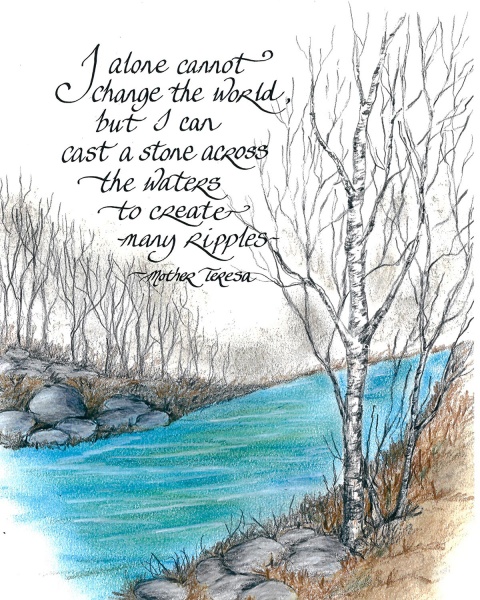 I alone cannot
change the world,
but I can
cast a stone across
the waters
to create
many ripples
~Mother Teresa